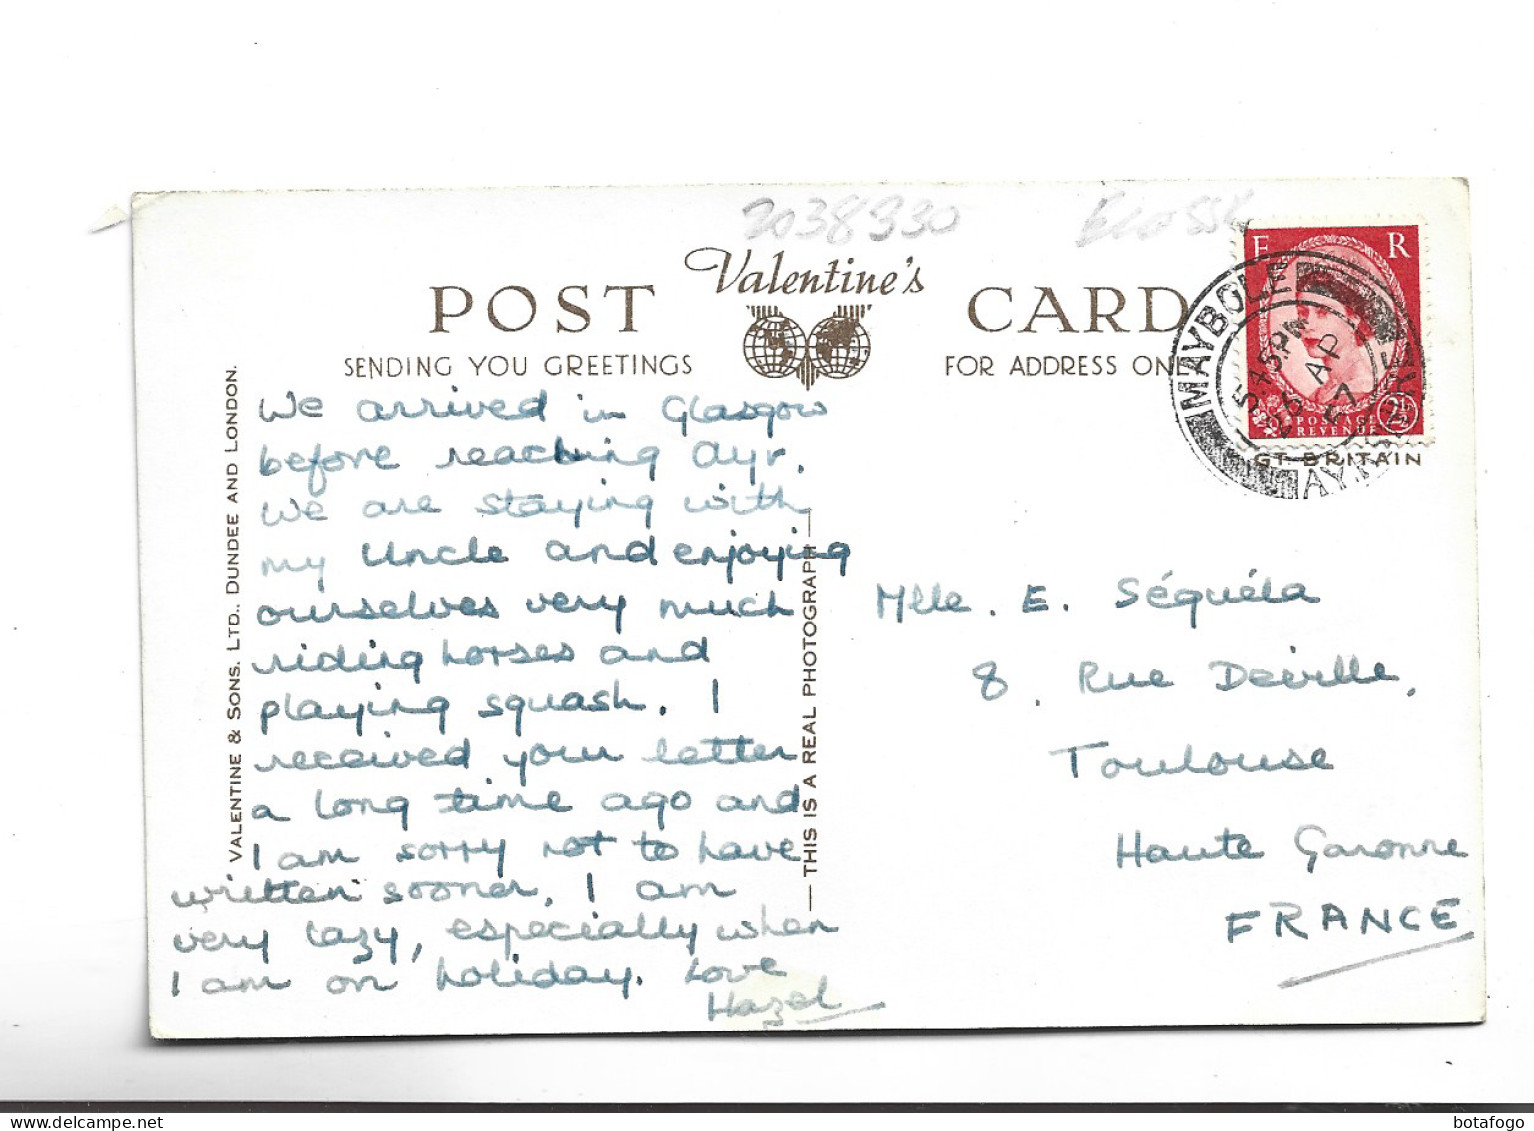 2038330
Valentine's
POST CARD
SENDING YOU GREETINGS
FOR ADDRESS ON
VALENTINE & SONS. LTD., DUNDEE AND LONDON.
We arrived in Glasgow
before reaching Ayr.
We are staying with
my Uncle and enjoying
ourselves very much
riding horses and
playing squash. I
received your letter
a long time ago and
I am sorry not to have
written sooner. I am
very lazy, especially when
I am on holiday. Love
Hazel
THIS IS A REAL PHOTOGRAPH
E R
POSTAGE
REVENUE
2½
MAYBOLE
5 45 PM
AP
57
AYRSHIRE
GT. BRITAIN
Mlle. E. Séquéla
8, Rue Deville,
Toulouse
Haute Garonne
FRANCE
Picture botafogo.delcampe.net
botafogo